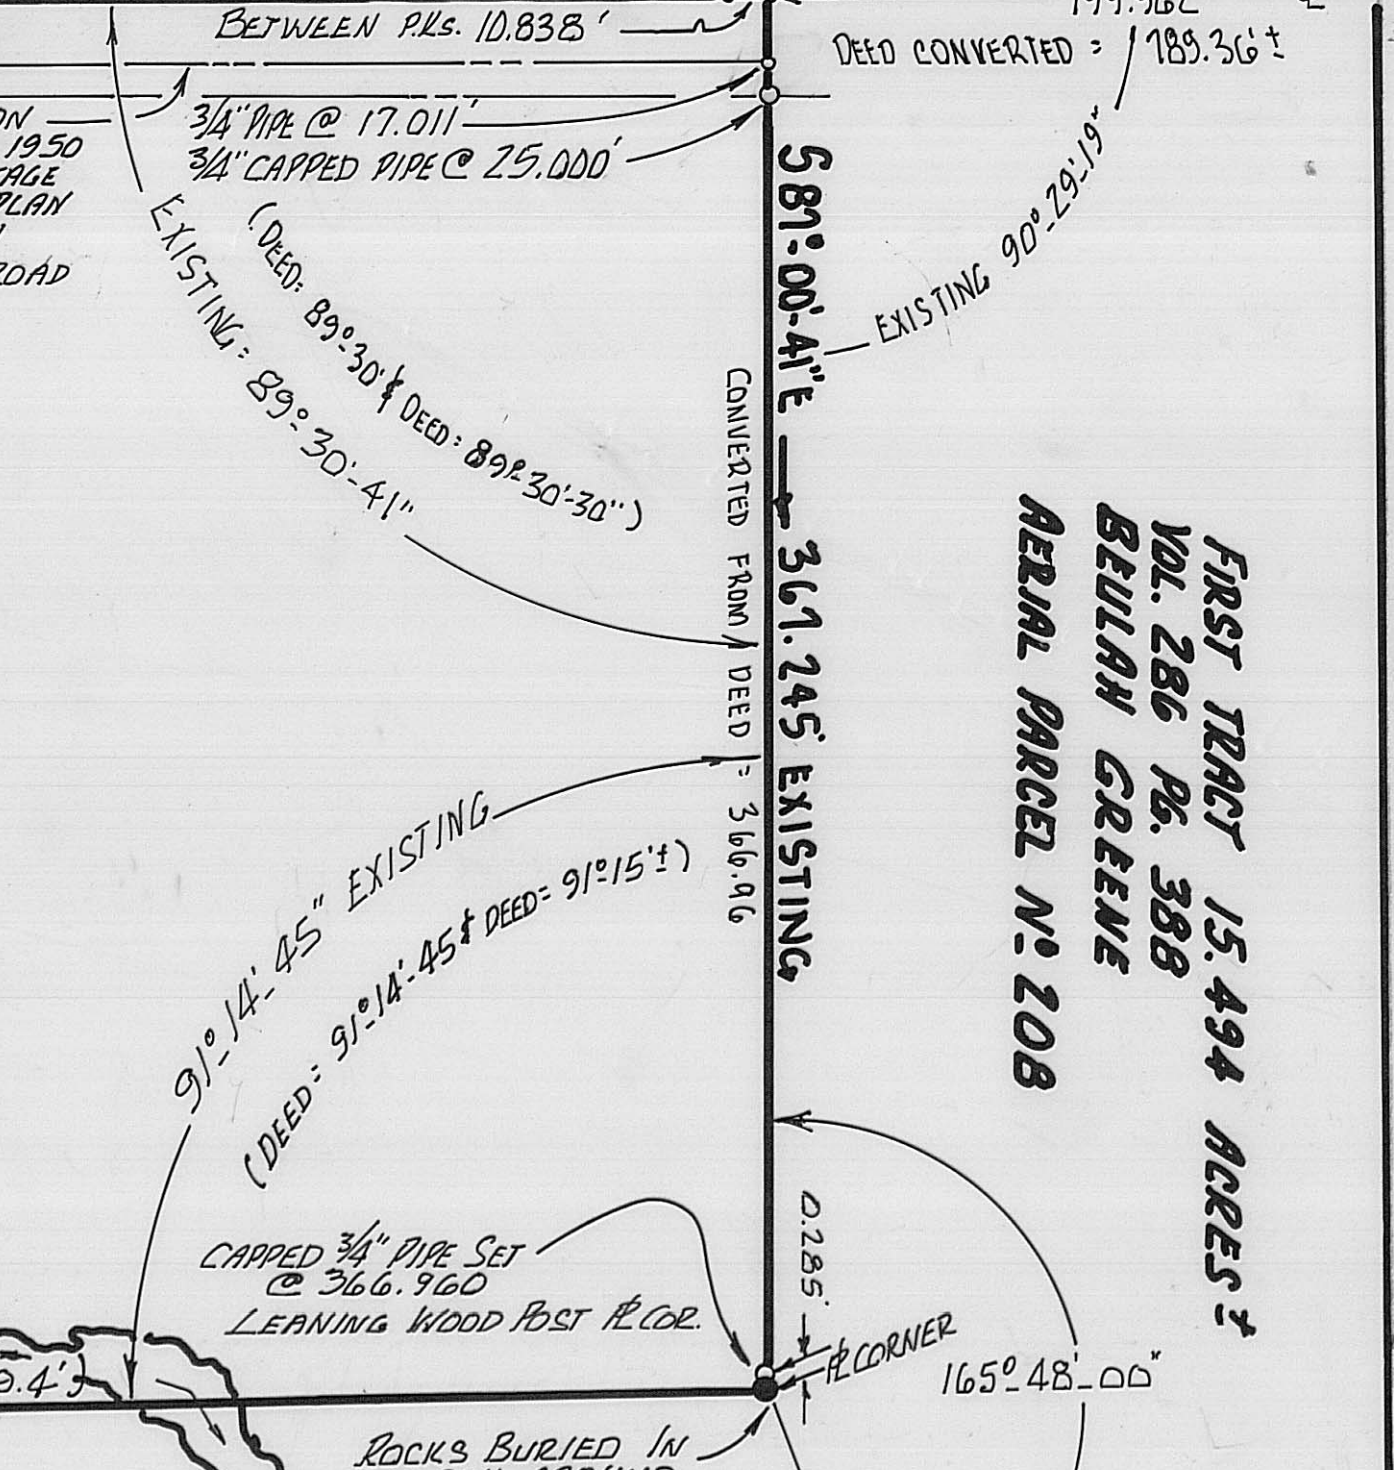 BETWEEN P.Ks. 10.838'
DEED CONVERTED = 789.36'±
ON
1950
TAGE
PLAN
ROAD
3/4" PIPE @ 17.011'
3/4" CAPPED PIPE @ 25.000'
EXISTING: 89°-30'-41"
(DEED: 89°-30' & DEED: 89°-30'-30")
S 87°-00'-41" E
367.245' EXISTING
CONVERTED FROM DEED = 366.96
EXISTING 90°-29'-19"
FIRST TRACT 15.494 ACRES ±
VOL. 286 PG. 388
BEULAH GREENE
AERIAL PARCEL Nº 208
91°-14'-45" EXISTING
(DEED: 91°-14'-45 & DEED = 91°15'±)
CAPPED 3/4" PIPE SET
@ 366.960
LEANING WOOD POST PL COR.
0.285'
PL CORNER
165°-48'-00"
0.4')
ROCKS BURIED IN